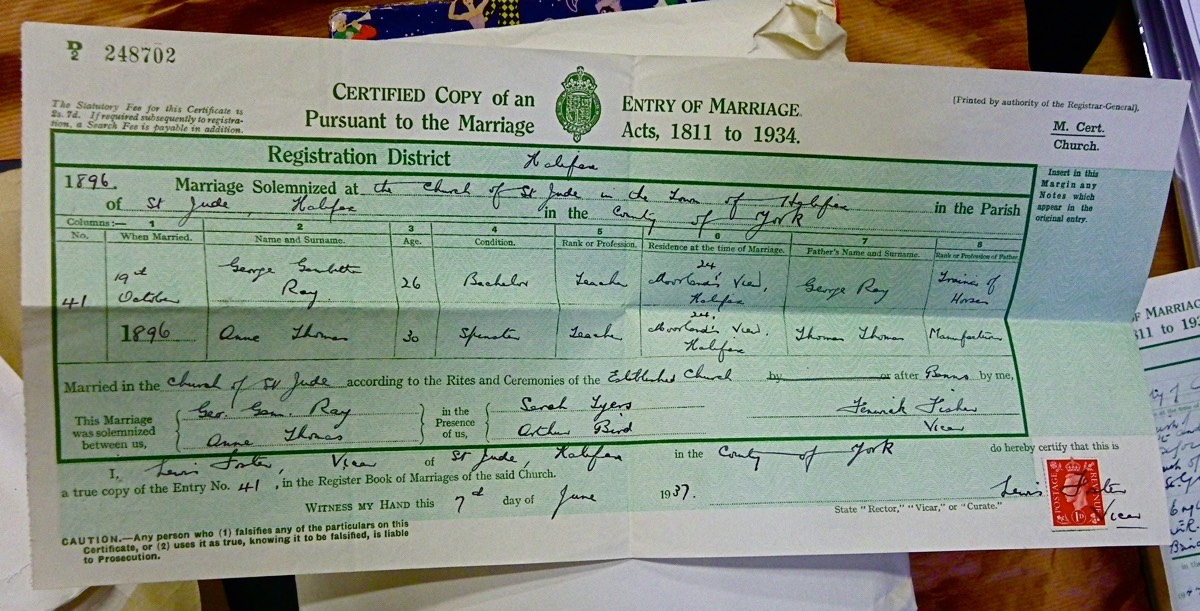 D/2 248702
The Statutory Fee for this Certificate is
2s. 7d. If required subsequently to registra-
tion, a Search Fee is payable in addition.
CERTIFIED COPY of an ENTRY OF MARRIAGE.
Pursuant to the Marriage Acts, 1811 to 1934.
[Printed by authority of the Registrar-General].
M. Cert.
Church.
Insert in this
Margin any
Notes which
appear in the
original entry.
Registration District Halifax
1896. Marriage Solemnized at the Church of St Jude in the Town of Halifax in the Parish
of St Jude, Halifax in the County of York
Columns:— 1 2 3 4 5 6 7 8
No. When Married. Name and Surname. Age. Condition. Rank or Profession. Residence at the time of Marriage. Father's Name and Surname. Rank or Profession of Father
41 19th October 1896 George Gambetta Ray 26 Bachelor Teacher 24 Moorland's View, Halifax George Ray Trainer of Horses
Anne Thomas 30 Spinster Teacher 24, Moorland's View, Halifax Thomas Thomas Manufacturer
Married in the Church of St Jude according to the Rites and Ceremonies of the Established Church by or after Banns by me,
This Marriage was solemnized between us, Geo. Gam. Ray Anne Thomas in the Presence of us, Sarah Tyers Arthur Bird Fenwick Fisher Vicar
I, Lewis Foster, Vicar of St Jude, Halifax in the County of York do hereby certify that this is
a true copy of the Entry No. 41, in the Register Book of Marriages of the said Church.
WITNESS MY HAND this 7th day of June 1937.
Lewis Foster
Vicar
State "Rector," "Vicar," or "Curate."
POSTAGE REVENUE
1D
CAUTION.—Any person who (1) falsifies any of the particulars on this
Certificate, or (2) uses it as true, knowing it to be falsified, is liable
to Prosecution.
OF MARRIAG
811 to 193